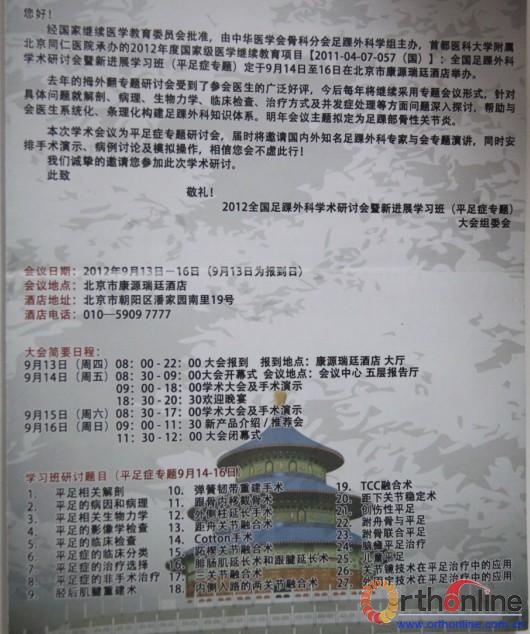 您好！
经国家继续医学教育委员会批准，由中华医学会骨科分会足踝外科学组主办，首都医科大学附属
北京同仁医院承办的2012年度国家级医学继续教育项目【2011-04-07-057（国）】：全国足踝外科学
术研讨会暨新进展学习班（平足症专题）定于9月14日至16日在北京市康源瑞廷酒店举办。
去年的拇外翻专题研讨会受到了参会医生的广泛好评，今后每年将继续采用专题会议形式，针对
具体问题就解剖、病理、生物力学、临床检查、治疗方式及并发症处理等方面问题深入探讨，帮助与
会医生系统化、条理化构建足踝外科知识体系。明年会议主题拟定为足踝部骨性关节炎。
本次学术会议为平足症专题研讨会，届时将邀请国内外知名足踝外科专家与会专题演讲，同时安
排手术演示、病例讨论及模拟操作，相信您会不虚此行！
我们诚挚的邀请您参加此次学术研讨。
此致
敬礼！
2012全国足踝外科学术研讨会暨新进展学习班（平足症专题）
大会组委会
会议日期：2012年9月13日－16日（9月13日为报到日）
会议地点：北京市康源瑞廷酒店
酒店地址：北京市朝阳区潘家园南里19号
酒店电话：010—5909 7777
大会简要日程：
9月13日（周四）08：00 - 22：00 大会报到 报到地点：康源瑞廷酒店 大厅
9月14日（周五）08：30 - 09：00大会开幕式 会议地点：会议中心 五层报告厅
09：00 - 18：00学术大会及手术演示
18：30 - 20：30欢迎晚宴
9月15日（周六）08：30 - 17：00学术大会及手术演示
9月16日（周日）09：00 - 11：30 新产品介绍 / 推荐会
11：30 - 12：00 大会闭幕式
学习班研讨题目（平足症专题9月14-16日）
1. 平足相关解剖
2. 平足的病因和病理
3. 平足相关生物力学
4. 平足的影像学检查
5. 平足的临床检查
6. 平足症的临床分类
7. 平足症的治疗选择
8. 平足症的非手术治疗
9. 胫后肌腱重建术
10. 弹簧韧带重建手术
11. 跟骨内移截骨术
12. 外侧柱延长手术
13. 距舟关节融合术
14. Cotton手术
15. 跖楔关节融合术
16. 腓肠肌延长术和跟腱延长术
17. 三关节融合术
18. 内侧入路的两关节融合术
19. TCC融合术
20. 距下关节稳定术
21. 创伤性平足
22. 副舟骨与平足
23. 跗骨联合平足
24. 脑瘫平足治疗
25. 儿童平足
26. 关节镜技术在平足治疗中的应用
27. 外固定技术在平足治疗中的应用
Orthonline
www.orthonline.com.cn